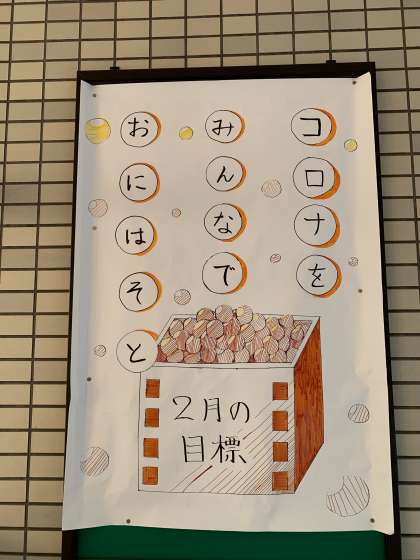 コロナを
みんなで
おにはそと
2月の
目標